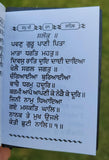 ਸਲੋਕੁ ॥
ਪਵਣੁ ਗੁਰੂ ਪਾਣੀ ਪਿਤਾ
ਮਾਤਾ ਧਰਤਿ ਮਹਤੁ ॥
ਦਿਵਸੁ ਰਾਤਿ ਦੁਇ ਦਾਈ ਦਾਇਆ
ਖੇਲੈ ਸਗਲ ਜਗਤੁ ॥
ਚੰਗਿਆਈਆ ਬੁਰਿਆਈਆ
ਵਾਚੈ ਧਰਮੁ ਹਦੂਰਿ ॥
ਕਰਮੀ ਆਪੋ ਆਪਣੀ
ਕੇ ਨੇੜੈ ਕੇ ਦੂਰਿ ॥
ਜਿਨੀ ਨਾਮੁ ਧਿਆਇਆ
ਗਏ ਮਸਕਤਿ ਘਾਲਿ ॥
ਨਾਨਕ ਤੇ ਮੁਖ ਉਜਲੇ
ਕੇਤੀ ਛੁਟੀ ਨਾਲਿ ॥੧॥